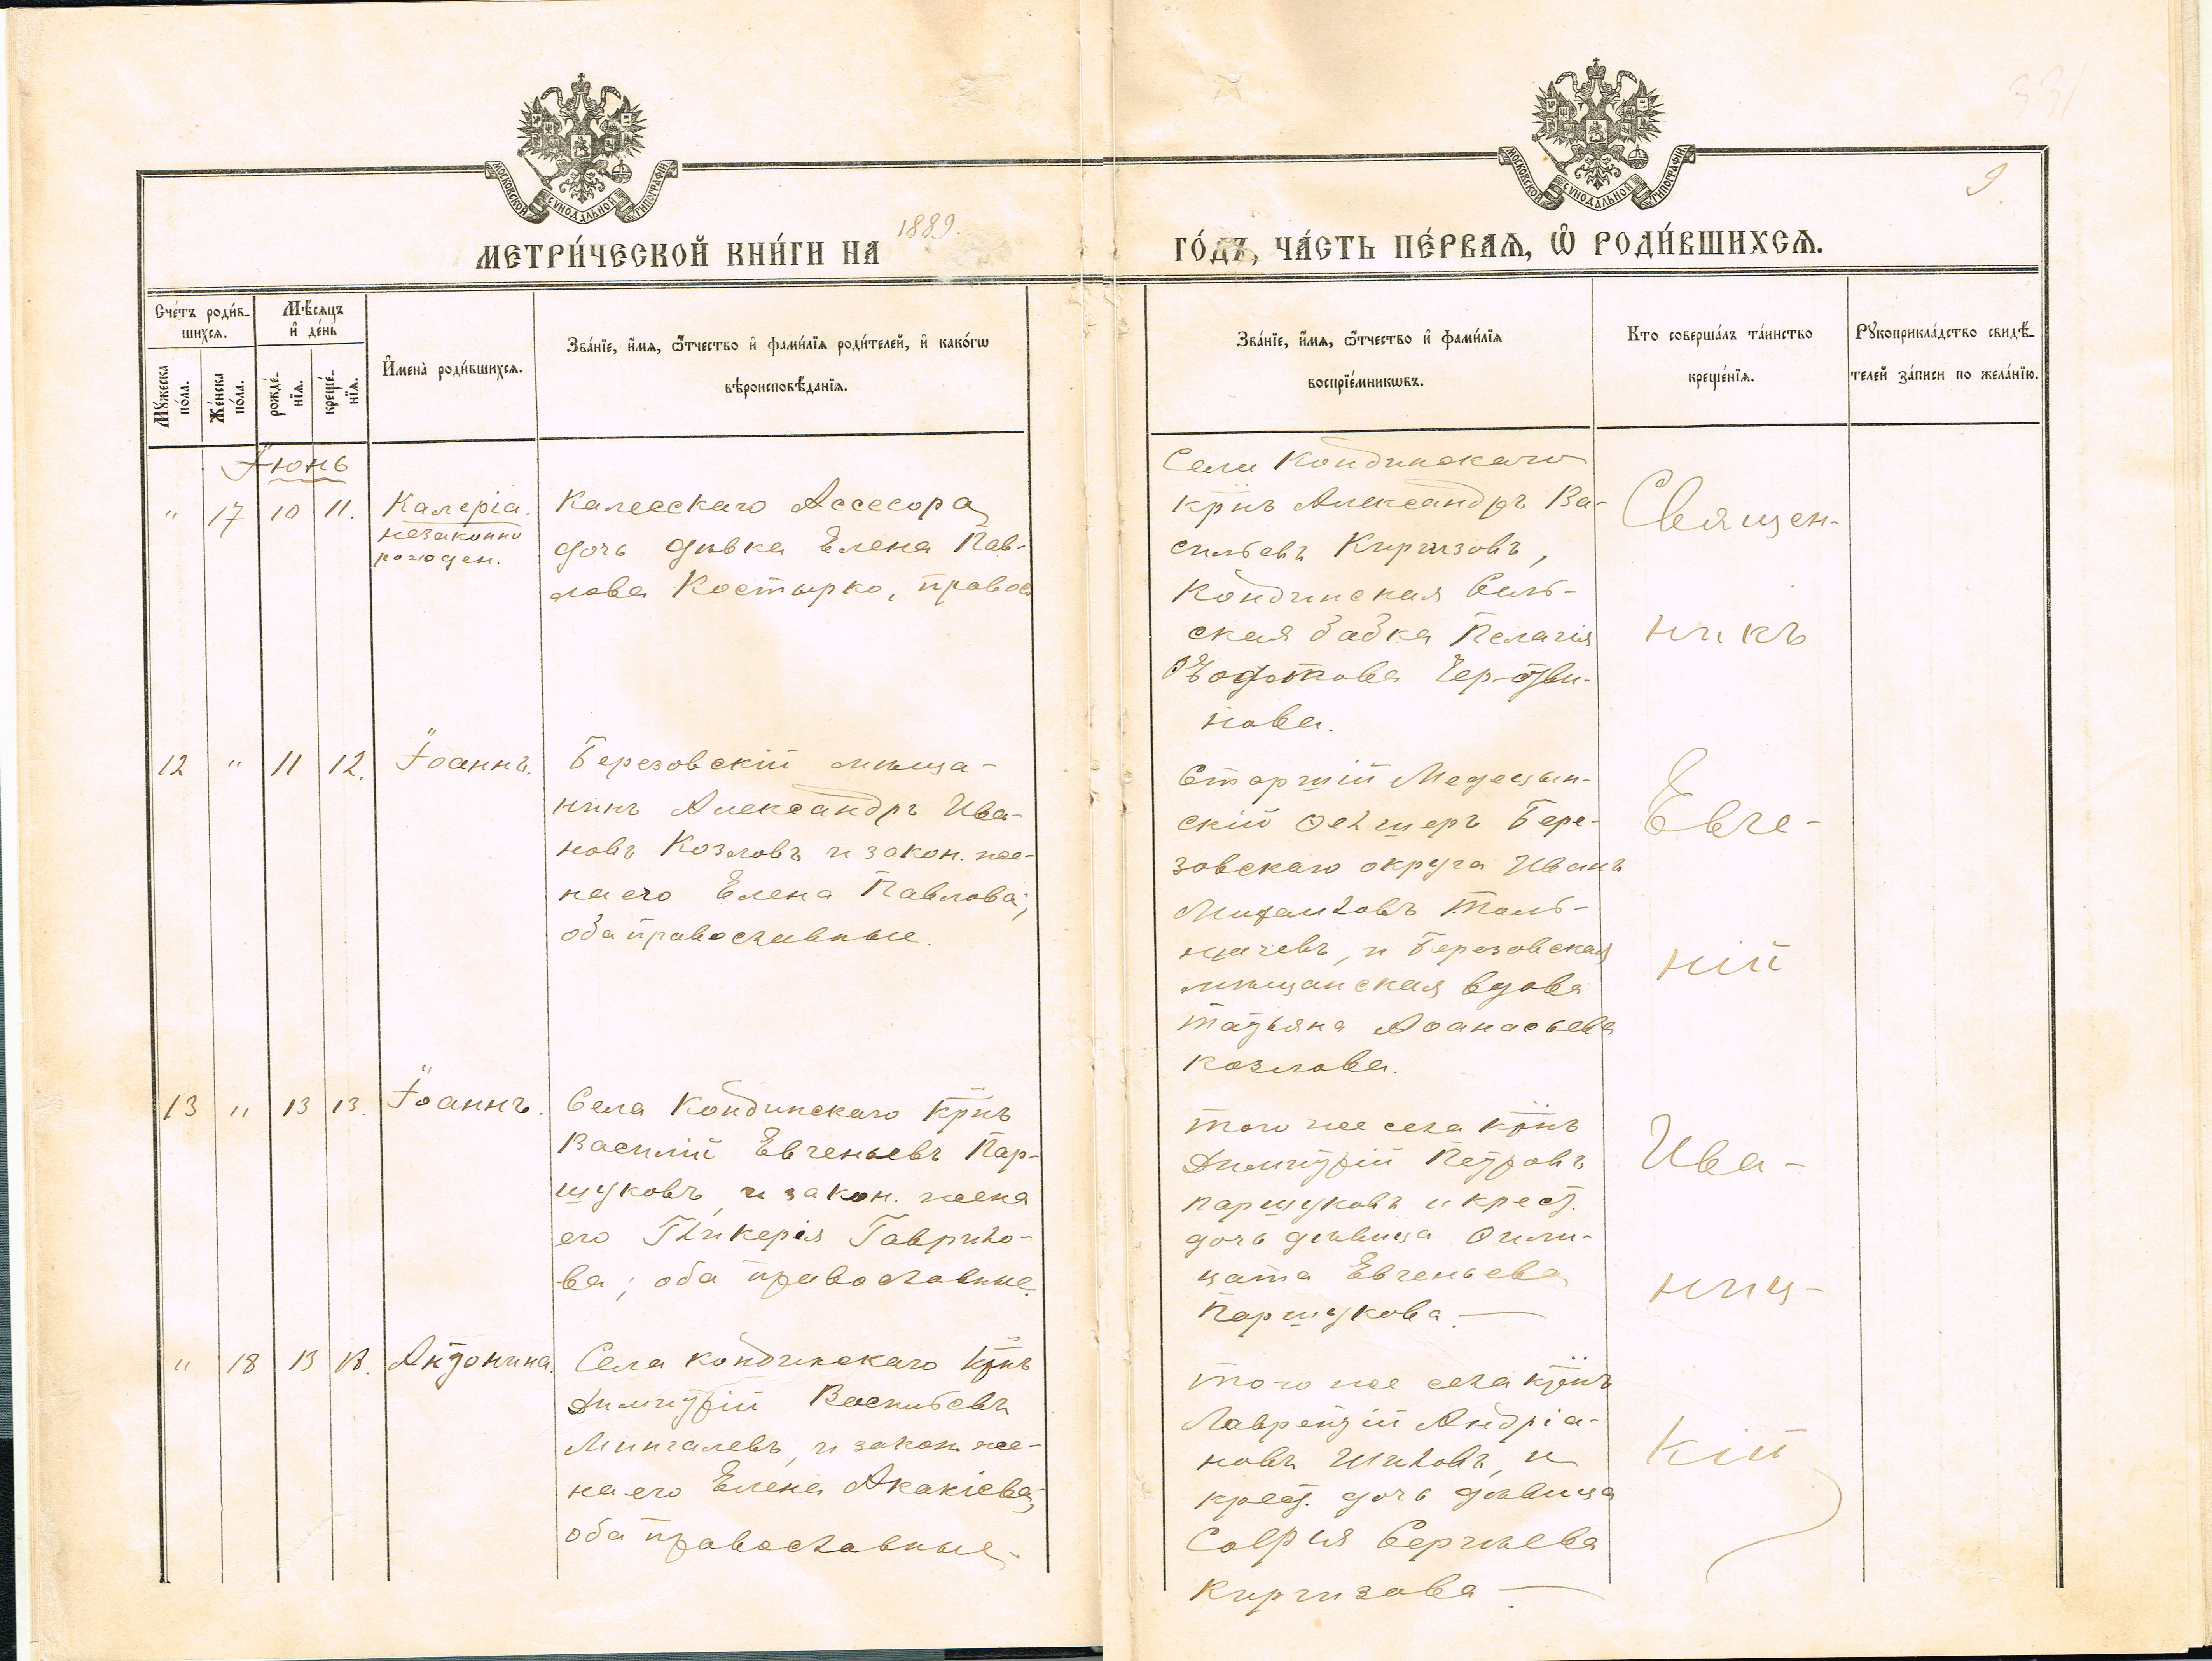 МОСКОВСКОЙ СѴНОДАЛЬНОЙ ТИПОГРАФІИ
МОСКОВСКОЙ СѴНОДАЛЬНОЙ ТИПОГРАФІИ
9.
МЕТРИ́ЧЕСКОЙ КНИ́ГИ НА 1889. ГО́ДЪ, ЧА́СТЬ ПЕ́РВАЯ, Ѡ РОДИ́ВШИХСЯ.
Сче́тъ роди́в-
шихся.
Мꙋ́жеска
по́ла.
Же́нска
по́ла.
Мѣ́сяцъ
и҆ де́нь
рожде́-
нїя.
креще́-
нїя.
И҆мена̀ роди́вшихся.
Зва́нїе, и҆́мя, ѻ҆́тчество и҆ фами́лїя роди́телей, и҆ како́гѡ
вѣроисповѣ́данїя.
Зва́нїе, и҆́мя, ѻ҆́тчество и҆ фами́лїя
воспрїе́мниковъ.
Кто соверша́лъ та́инство
креще́нїя.
Рꙋкоприкла́дство свидѣ́-
телей за́писи по жела́нїю.
Іюнь
" 17 10 11. Калеріа.
незаконно
рожден.
Калеескаго Ассесора
дочь дѣвка Елена Пав-
лова Костырко, правос
Села Кондинскаго
крнъ Александръ Ва-
сильевъ Киргизовъ,
Кондинская Сель-
ская бабка Пелагія
нова.
12 " 11 12. Іоаннъ.
Березовскій мѣща-
нинъ Александръ Ива-
новъ Козловъ и закон. же-
на его Елена Павлова;
оба православные.
Старшій Медецын-
скій Фелшеръ Бере-
зовскаго округа Иванъ
Михаиловъ Толь-
мачевъ, и Березовская
мѣщанская вдова
Татьяна Аѳанасьева
Козлова.
13 " 13 13. Іоаннъ.
Села Кондинскаго Крнъ
Василій Евгеньевъ Пар-
шуковъ, и закон. жена
его Гликерія Гаврило-
ва; оба православные.
Того же села крнъ
Димитрій Петровъ
Паршуковъ и крест.
дочь дѣвица Фили-
цата Евгеньева
Паршукова. —
" 18 13 18. Антонина.
Села Кондинскаго Крнъ
Димитрій Васильевъ
Мингалевъ, и закон. же-
на его Елена Акакіева;
оба православные.
Того же села крнъ
Лаврентій Андріа-
новъ Шиловъ, и
крест. дочь дѣвица
Софія Сергѣева
Киргизова. —
Священ-
никъ
Евге-
ній
Ива-
ниц-
кій